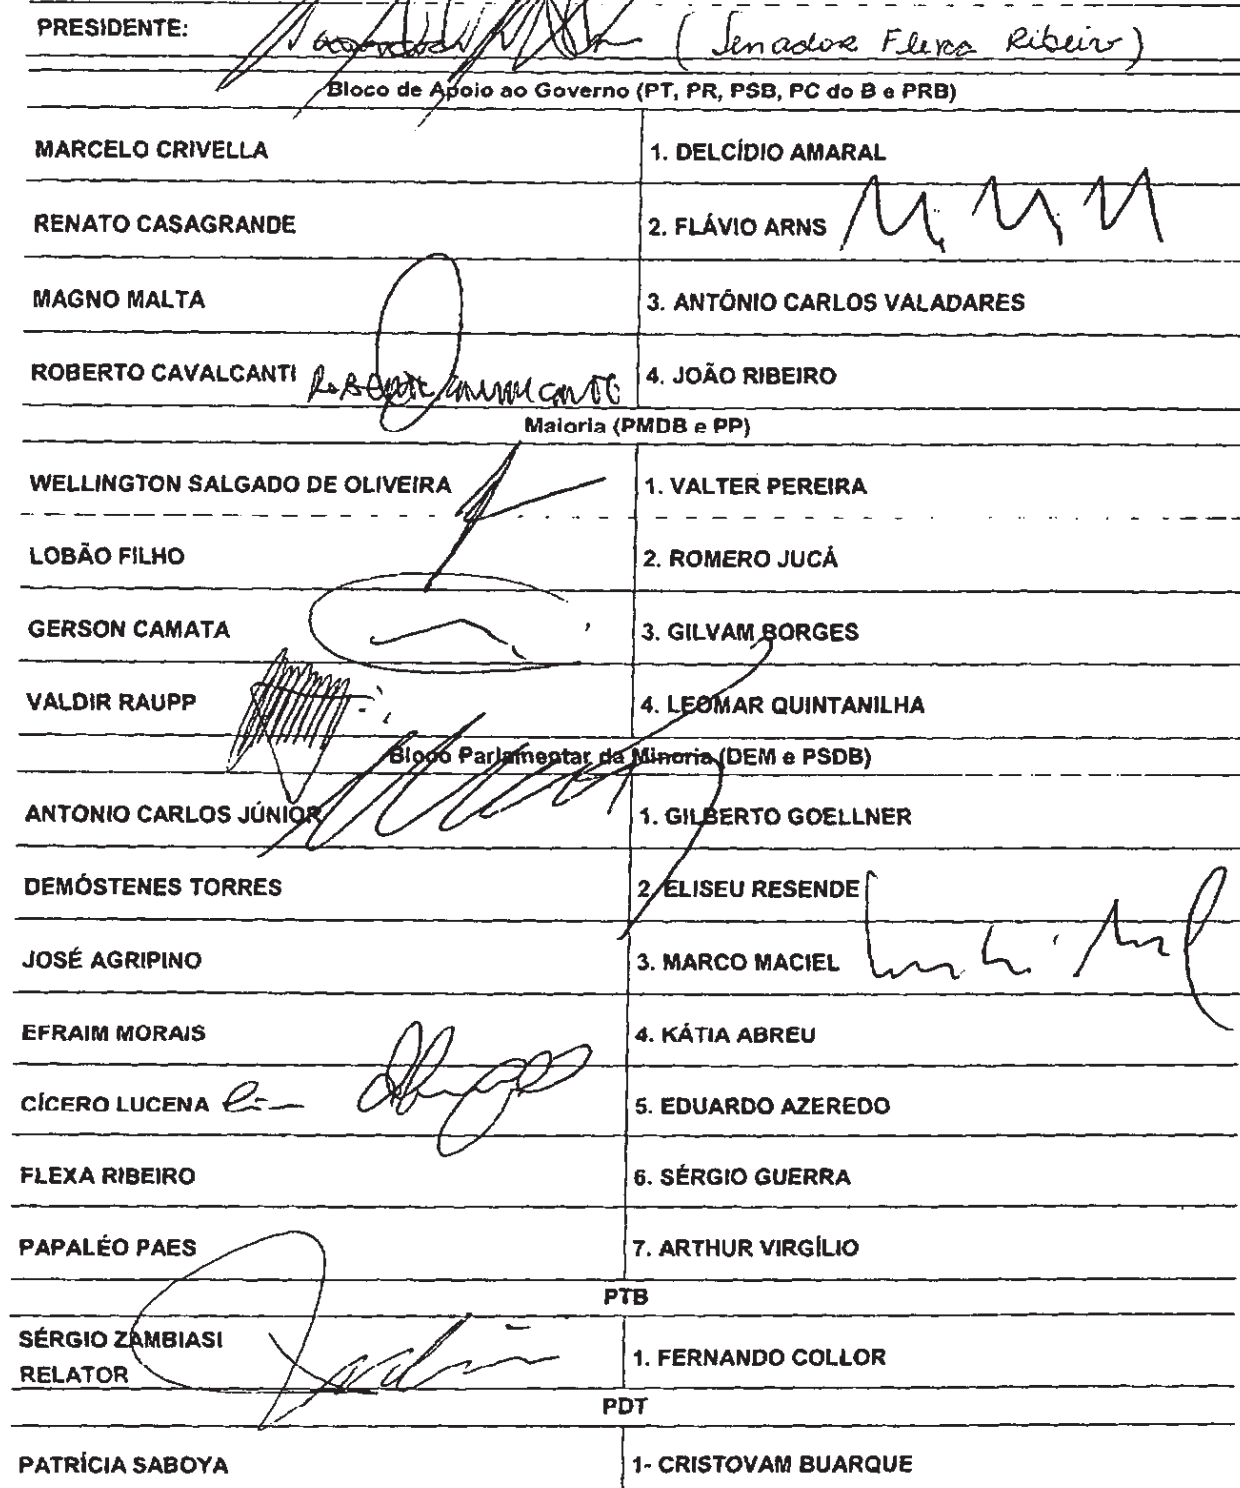 PRESIDENTE: (Senador Flexa Ribeiro)
Bloco de Apoio ao Governo (PT, PR, PSB, PC do B e PRB)
MARCELO CRIVELLA 1. DELCÍDIO AMARAL
RENATO CASAGRANDE 2. FLÁVIO ARNS
MAGNO MALTA 3. ANTÔNIO CARLOS VALADARES
ROBERTO CAVALCANTI 4. JOÃO RIBEIRO
Maioria (PMDB e PP)
WELLINGTON SALGADO DE OLIVEIRA 1. VALTER PEREIRA
LOBÃO FILHO 2. ROMERO JUCÁ
GERSON CAMATA 3. GILVAM BORGES
VALDIR RAUPP 4. LEOMAR QUINTANILHA
Bloco Parlamentar da Minoria (DEM e PSDB)
ANTONIO CARLOS JÚNIOR 1. GILBERTO GOELLNER
DEMÓSTENES TORRES 2. ELISEU RESENDE
JOSÉ AGRIPINO 3. MARCO MACIEL
EFRAIM MORAIS 4. KÁTIA ABREU
CÍCERO LUCENA 5. EDUARDO AZEREDO
FLEXA RIBEIRO 6. SÉRGIO GUERRA
PAPALÉO PAES 7. ARTHUR VIRGÍLIO
PTB
SÉRGIO ZAMBIASI
RELATOR 1. FERNANDO COLLOR
PDT
PATRÍCIA SABOYA 1- CRISTOVAM BUARQUE